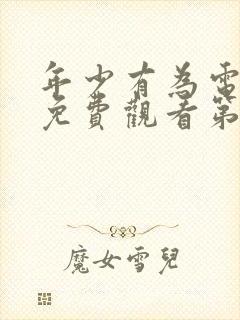 年少有為電
免費觀看第
魔女雪兒